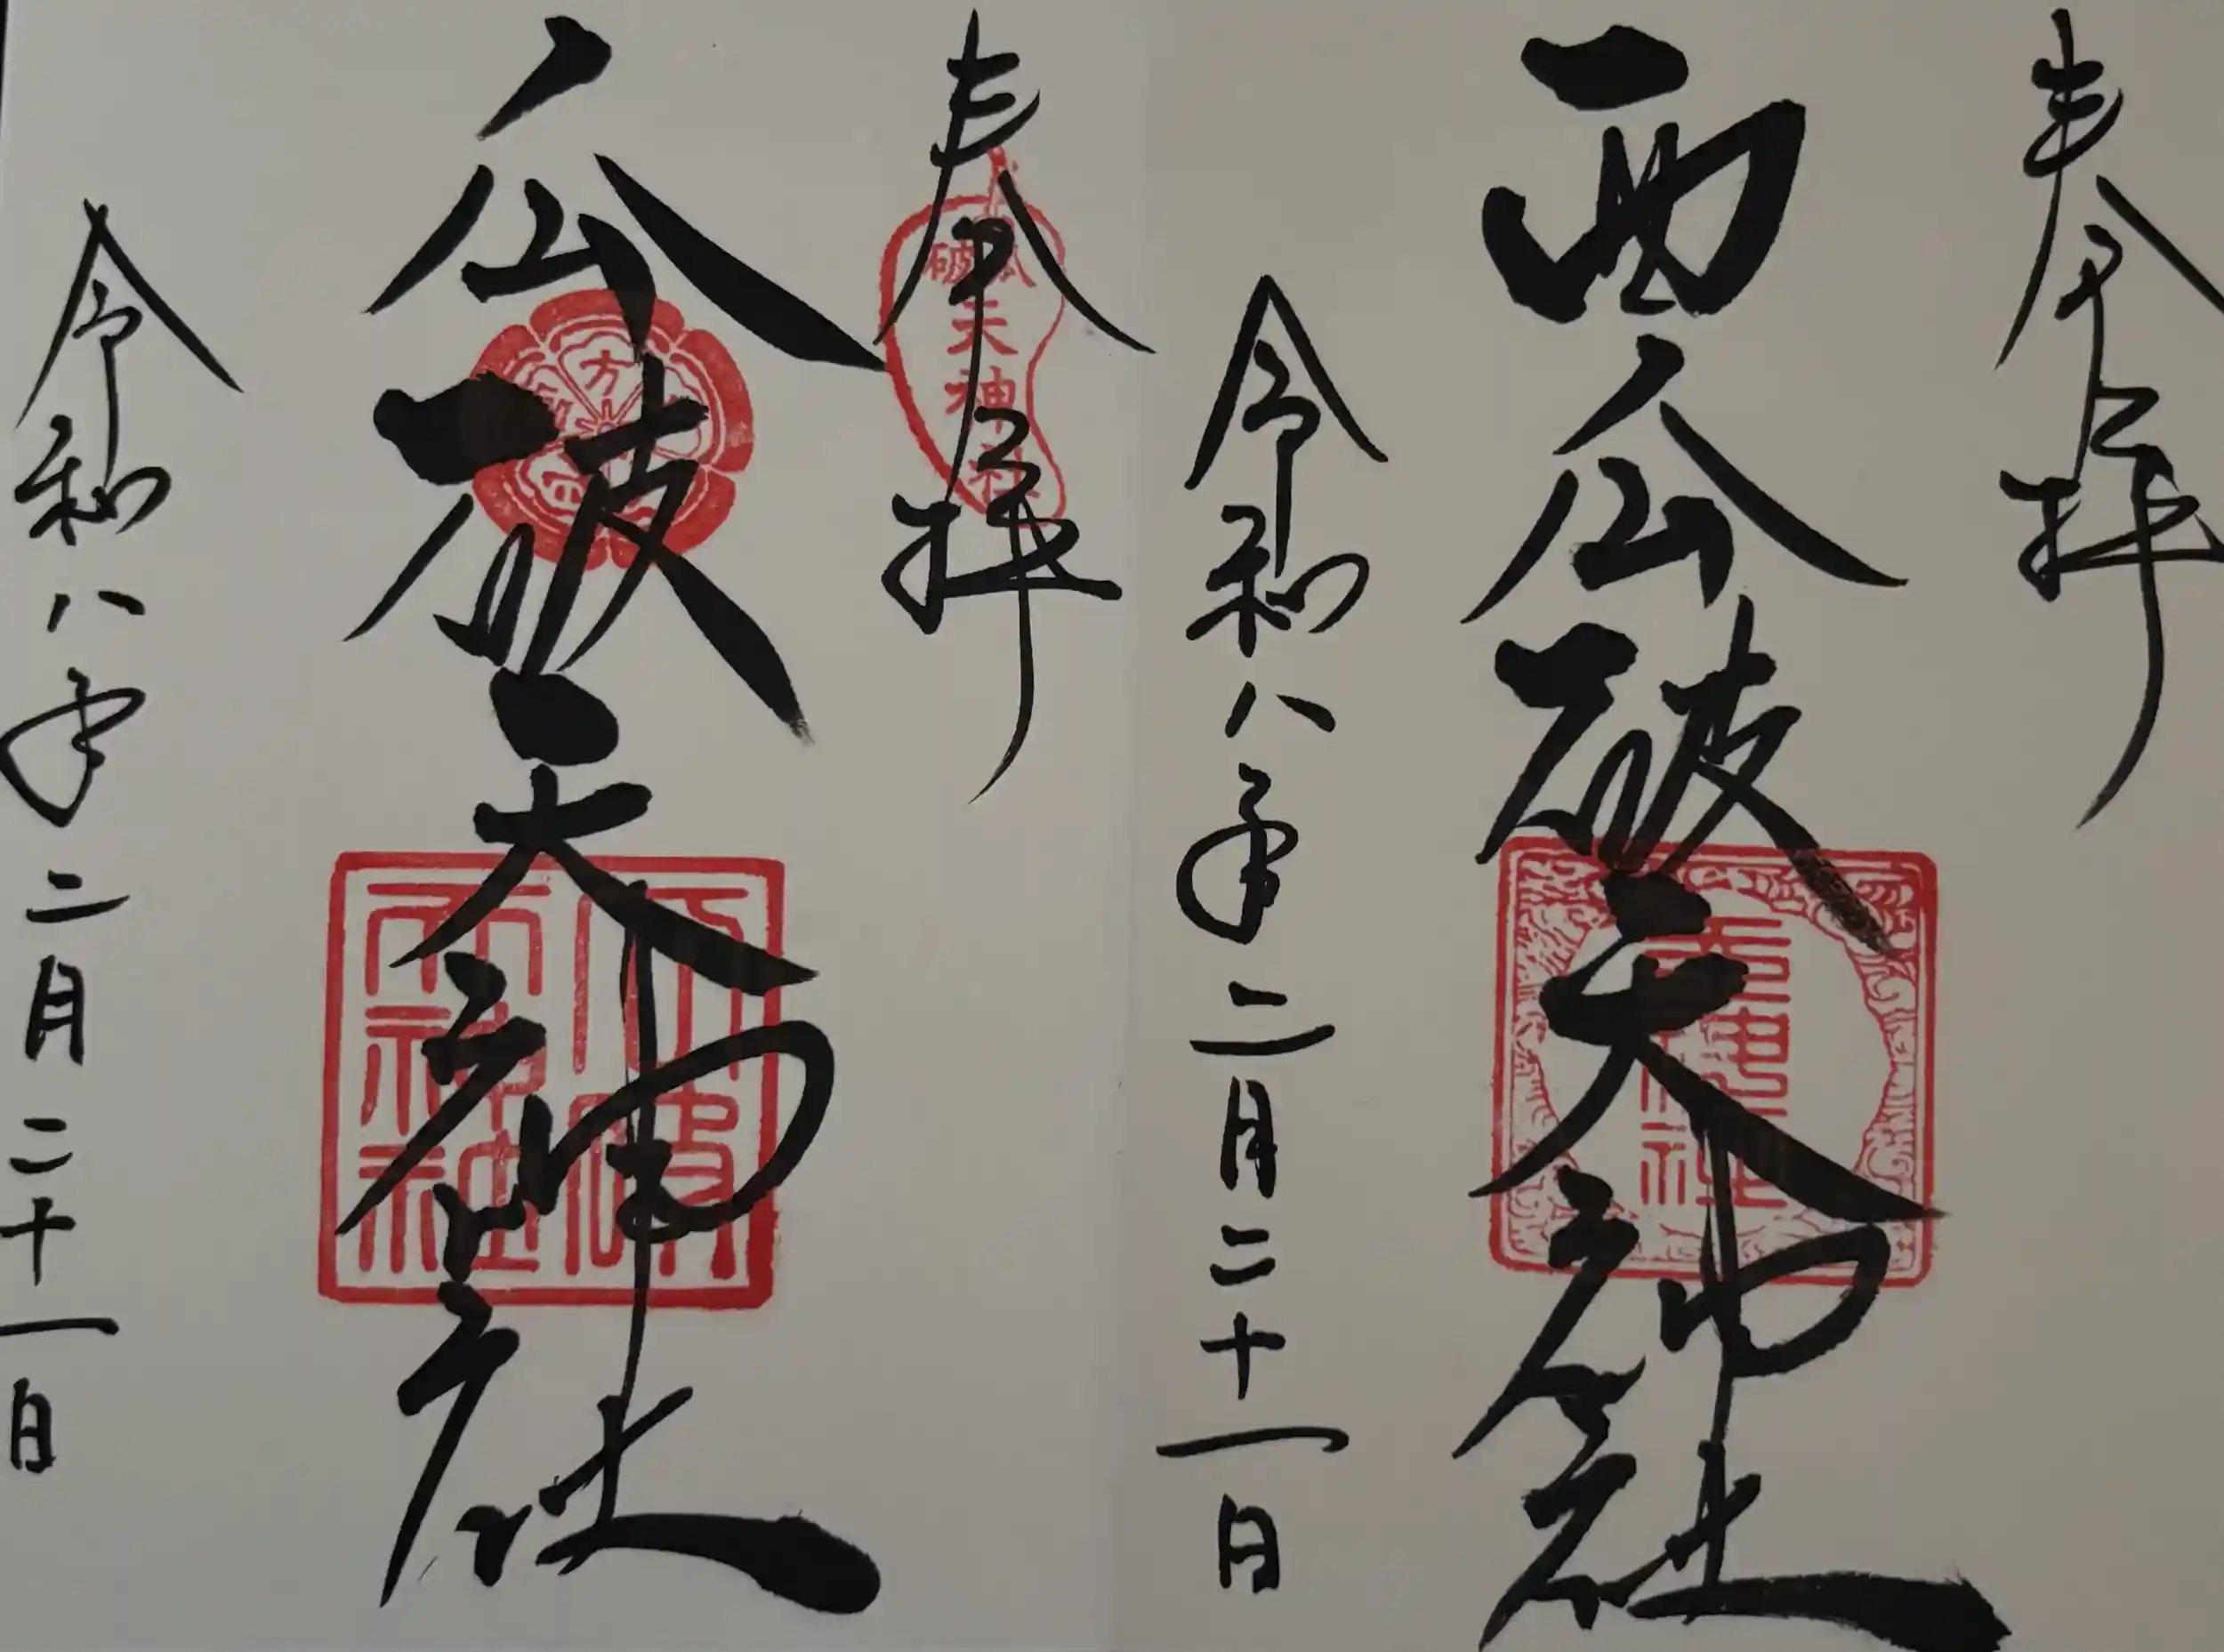 奉拝
西瓜破天神社
令和八年二月二十一日
奉拝
瓜破天神社
瓜破天神社
令和八年二月二十一日